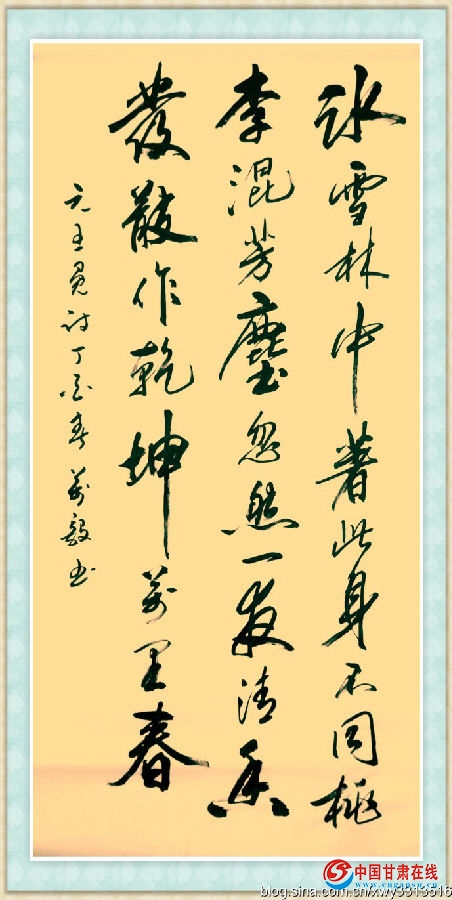 冰雪林中著此身不同桃
李混芳塵忽然一夜清香
發散作乾坤萬里春
元王冕詩丁酉春万毅书
中国甘肃在线
www.cngansu.cn
blog.sina.com.cn/xwy3313516